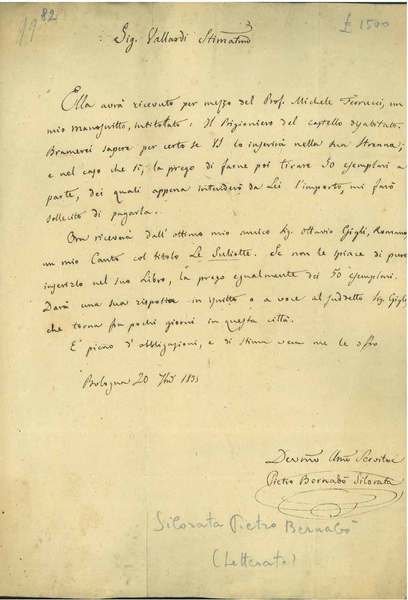 82
19
£ 1500
Sig. Vallardi Stimatmo
Ella avrà ricevuto per mezzo del Prof. Michele Ferrucci, un
mio manoscritto, intitolato: Il Prigioniero del castello disabitato.
Bramerei sapere per certo se Ella lo inserirà nella sua Strenna;
e nel caso che sì, la prego di farne poi tirare 50 esemplari a
parte, dei quali appena intenderò da Lei l'importo, mi farò
sollecito di pagarla.
Ora riceverà dall'ottimo mio amico Sig. Ottavio Gigli, Romano
un mio Canto col titolo Le Suliotte. Se non le spiace di pure
inserirlo nel suo Libro, la prego egualmente dei 50 esemplari.
Darà una sua risposta in iscritto o a voce al suddetto Sig. Gigli
che torna fra pochi giorni in questa città.
E pieno d'obbligazioni, e di stima vera me le offro
Bologna 20
Devmo Umo Servitore
Pietro Bernabò Silorata
Silorata Pietro Bernabò
(Letterato)